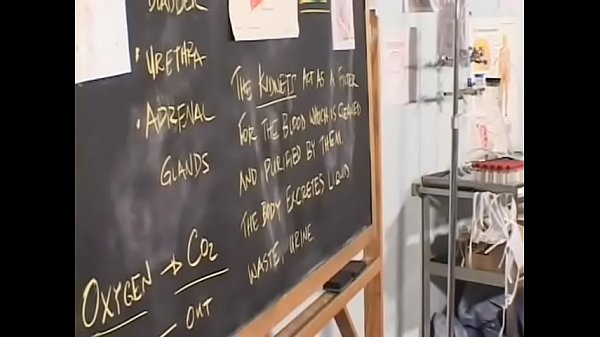 BLADDER
• URETHRA
• ADRENAL
GLANDS
THE KIDNEYS ACT AS A FILTER
FOR THE BLOOD WHICH IS CLEANED
AND PURIFIED BY THEM.
THE BODY EXCRETES LIQUID
WASTE, URINE.
OXYGEN → CO2
OUT